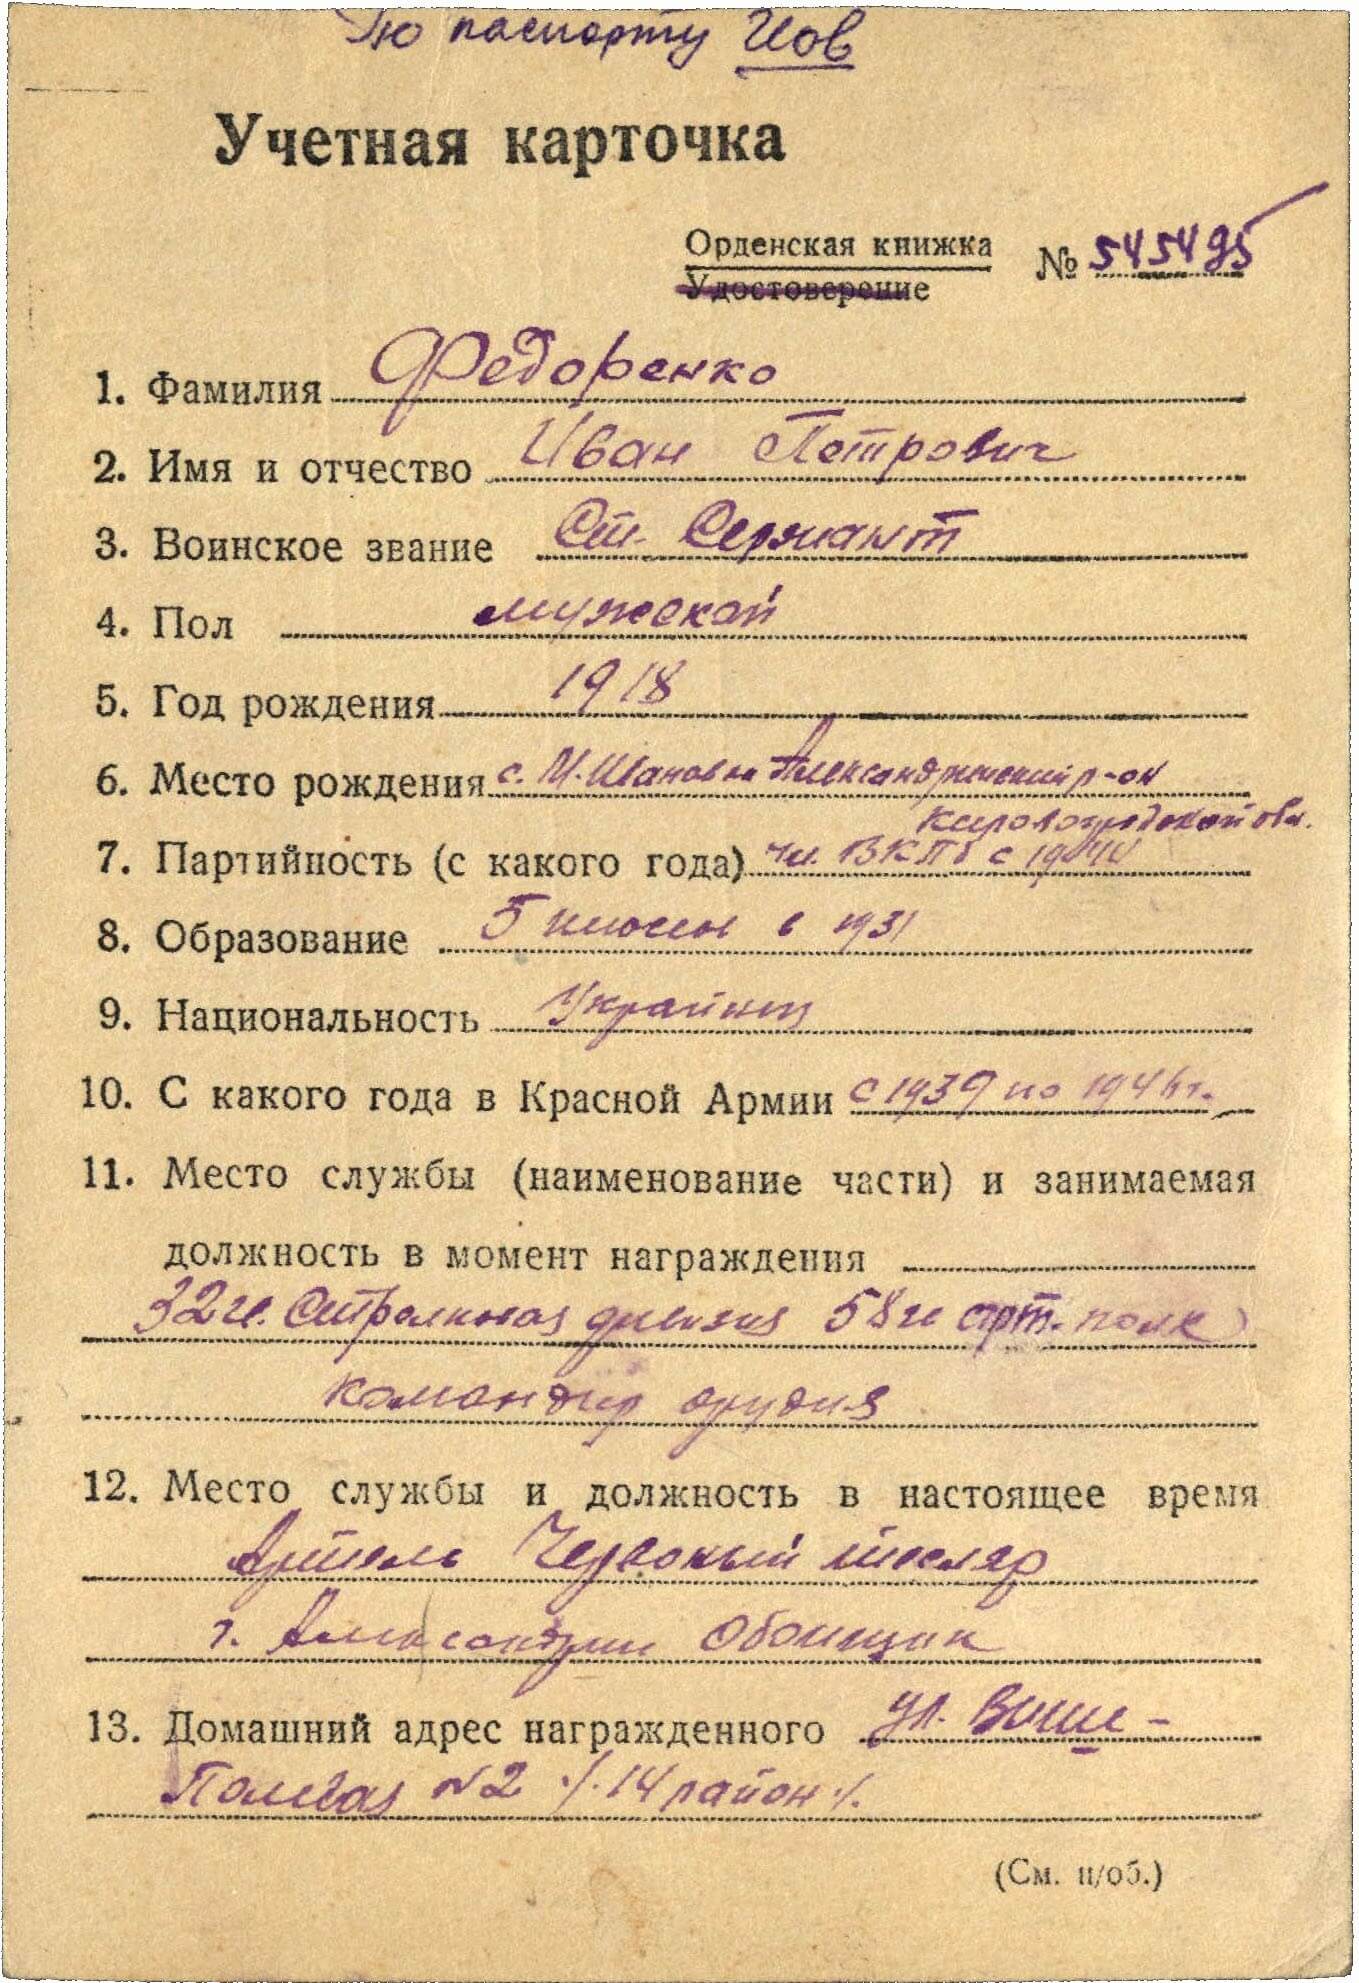 По паспорту Иов
Учетная карточка
Орденская книжка № 545495
Удостоверение
1. Фамилия Федоренко
2. Имя и отчество Иван Петрович
3. Воинское звание Ст. Сержант
4. Пол мужской
5. Год рождения 1918
6. Место рождения с. М. Ивановка Александрийский р-он
Кировоградской обл.
7. Партийность (с какого года) чл. ВКПб с 1940
8. Образование 5 классов в 1931
9. Национальность Украинец
10. С какого года в Красной Армии с 1939 по 1946 г.
11. Место службы (наименование части) и занимаемая
должность в момент награждения
32 гв. Стрелковая дивизия 58 гв арт. полк
командир орудия
12. Место службы и должность в настоящее время
Артель Червоный тесляр
г. Александрия Обойщик
13. Домашний адрес награжденного ул.
Полевая N2 /. 14 район /.
(См. н/об.)